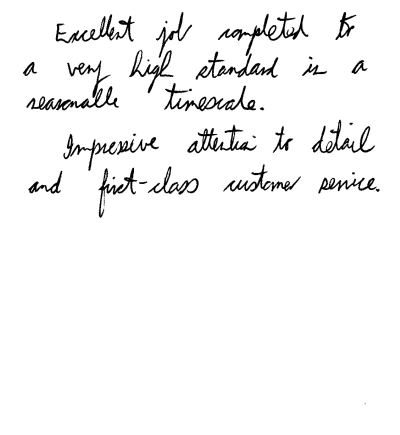 Excellent job completed to
a very high standard in a
reasonable timescale.
Impressive attention to detail
and first-class customer service.